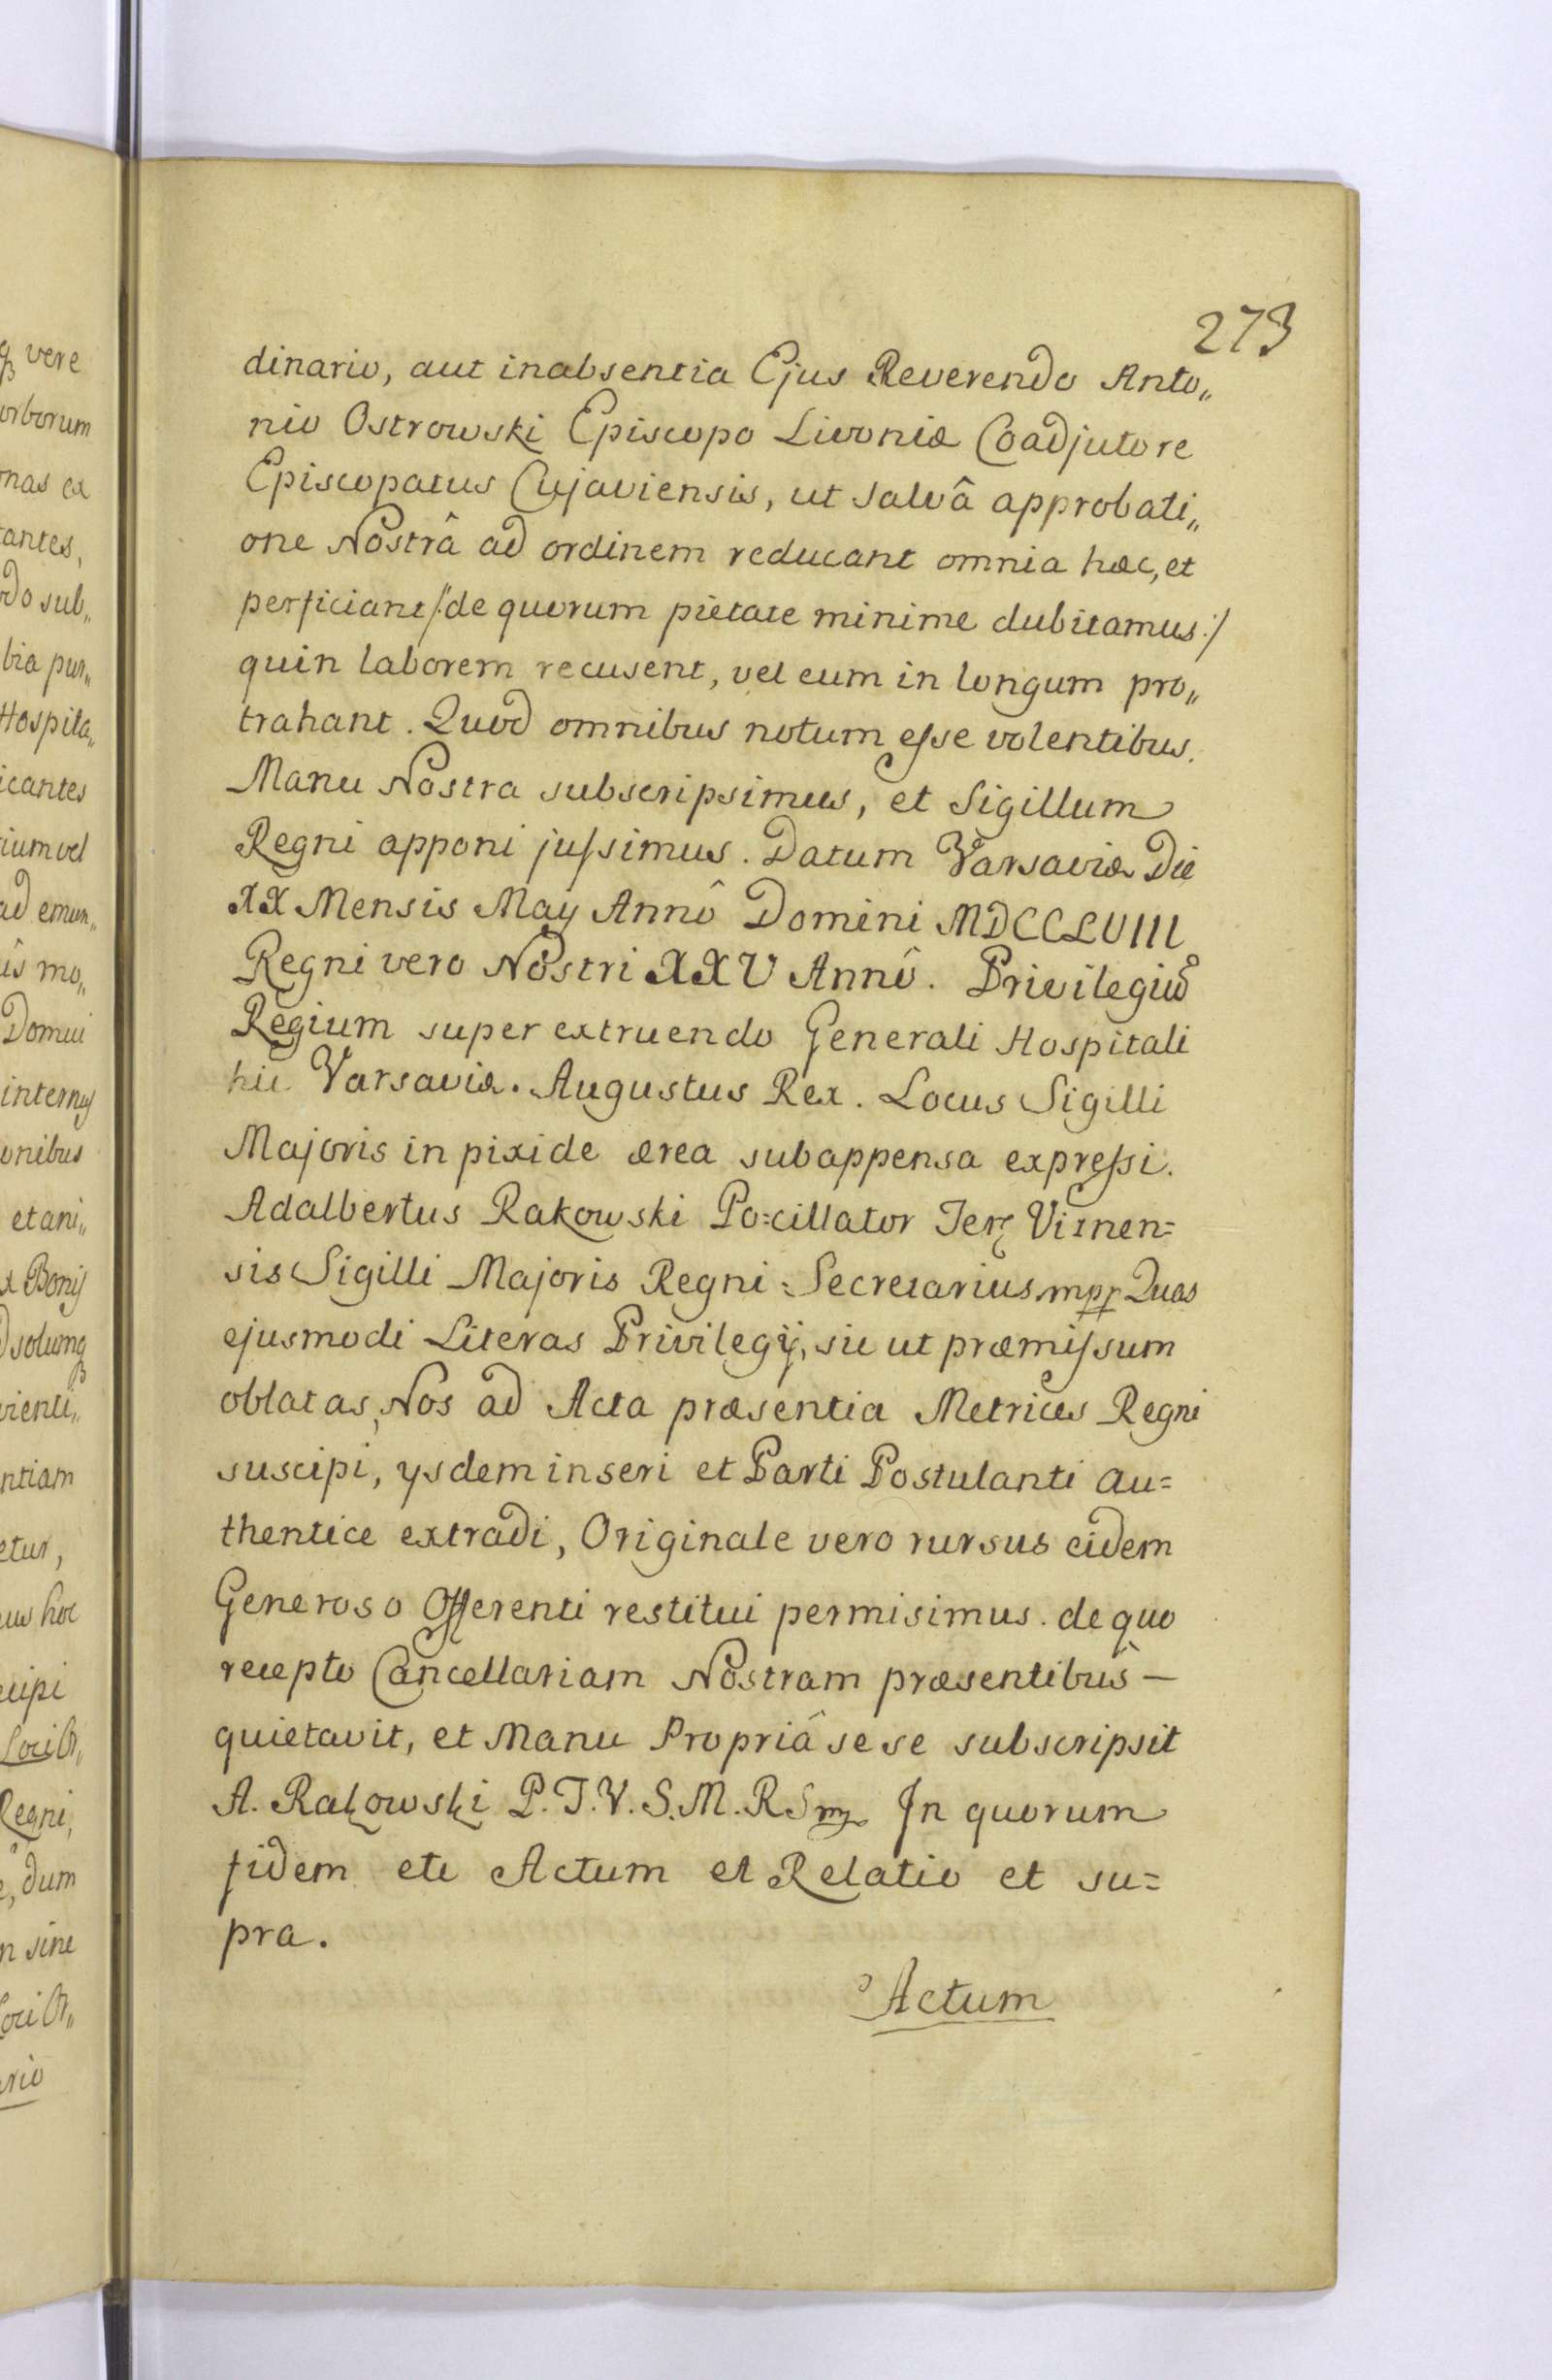 273
dinario, aut inabsentia Ejus Reverendo Anto„
nio Ostrowski Episcopo Livoniæ Coadjutore
Episcopatus Cujaviensis, ut salvâ approbati„
one Nostrâ ad ordinem reducant omnia hæc, et
perficiant /: de quorum pietate minime dubitamus :/
quin laborem recusent, vel eum in longum pro„
trahant. Quod omnibus notum esse volentibus.
Manu Nostra subscripsimus, et Sigillum
Regni apponi jussimus. Datum Varsaviæ Die
XX Mensis May Annô Domini MDCCLVIII
Regni vero Nostri XXV Annô. Privilegium
Regium super extruendo Generali Hospitali
hic Varsaviæ. Augustus Rex. Locus Sigilli
Majoris in pixide ærea subappensa expressi.
Adalbertus Rakowski Po=cillator Terr Visnen=
sis Sigilli Majoris Regni Secretarius mpp Quas
ejusmodi Literas Privilegij, sic ut præmissum
oblatas, Nos ad Acta præsentia Metrices Regni
suscipi, ysdem inseri et Parti Postulanti au=
thentice extradi, Originale vero rursus eidem
Generoso Offerenti restitui permisimus. de quo
recepto Cancellariam Nostram præsentibus —
quietavit, et Manu Propriâ se se subscripsit
A. Rakowski P. T. V. S. M. R S mp In quorum
fidem etc Actum et Relatio et su=
pra.
Actum
vere
orborum
antes,
do sub„
bia pur„
Hospita„
icantes
ad emun„
mo„
Domui
internis
onibus
et ani„
Bonij
solumq
vienti„
ntiam
etur,
hoc
Regni,
dum
sine